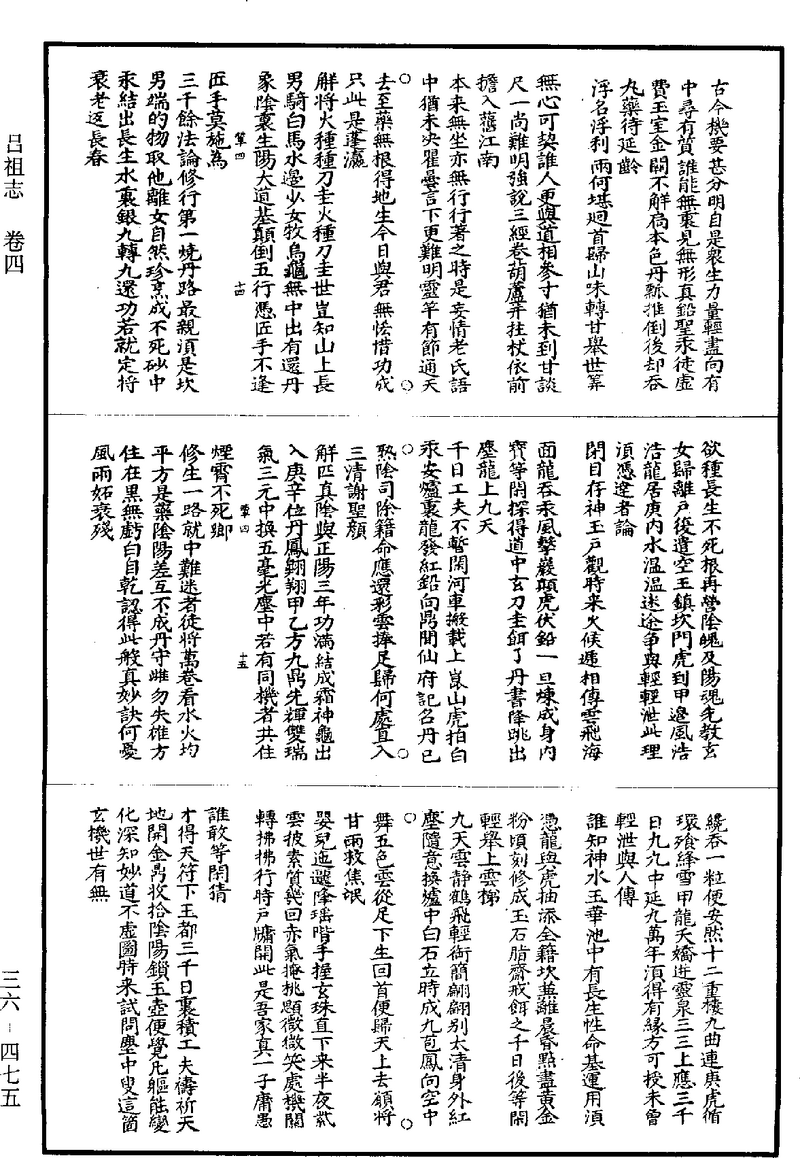 呂祖志　卷四
三六-四七五
古今機要甚分明自是衆生力量輕盡向有
中尋有質誰能無裏見無形真鉛聖汞徒虛
費玉室金關不解扃本色丹瓢推倒後却吞
九藥待延齡
浮名浮利兩何堪迴首歸山味轉甘舉世筭
無心可契誰人更與道相參寸猶未到甘談
尺一尚難明強說三經卷葫蘆并拄杖依前
擔入舊江南
本來無坐亦無行行著之時是妄情老氏語
中猶未決瞿曇言下更難明靈竿有節通天
去至藥無根得地生今日與君無恡惜功成
只此是蓬瀛
解將火種種刀圭火種刀圭世豈知山上長
男騎白馬水邊少女牧烏龜無中出有還丹
象陰裏生陽大道基顛倒五行憑匠手不逢
匠手莫施為
第四
十四
三千餘法論修行第一燒丹路最親須是坎
男端的物取他離女自然珍烹成不死砂中
汞結出長生水裏銀九轉九還功若就定將
衰老返長春
欲種長生不死根再營陰魄及陽魂先教玄
女歸離戶後遣空王鎮坎門虎到甲邊風浩
浩龍居庚內水溫溫迷途爭與輕輕泄此理
須憑達者論
閉目存神玉戶觀時來火候遞相傳雲飛海
面龍吞汞風擊巖顛虎伏鉛一旦煉成身內
寶等閑探得道中玄刀圭餌了丹書降跳出
塵龍上九天
千日工夫不暫閑河車搬載上崑山虎拍白
汞安爐裏龍發紅鉛向鼎間仙府記名丹已
熟陰司除籍命應還彩雲捧足歸何處直入
三清謝聖顏
解匹真陰與正陽三年功滿結成霜神龜出
入庚辛位丹鳳翱翔甲乙方九鼎先輝雙瑞
氣三元中換五毫光塵中若有同機者共住
煙霄不死鄉
第四
十五
修生一路就中難迷者徒將萬卷看水火均
平方是藥陰陽差互不成丹守雌勿失雄方
住在黑無虧白自乾認得此般真妙訣何憂
風雨妬衰殘
纔吞一粒便安然十二重樓九曲連庚虎循
環飡絳雪甲龍夭矯迸靈泉三三上應三千
日九九中延九萬年須得有緣方可授未曾
輕泄與人傳
誰知神水玉華池中有長生性命基運用須
憑龍與虎抽添全籍坎兼離晨昏點盡黃金
粉頃刻修成玉石脂齋戒餌之千日後等閑
輕舉上雲梯
九天雲靜鶴飛輕銜簡翩翩別太清身外紅
塵隨意換爐中白石立時成九苞鳳向空中
舞五色雲從足下生回首便歸天上去願將
甘雨救焦氓
嬰兒迤邐降瑤階手握玄珠直下來半夜紫
雲披素質幾回赤氣掩桃顋微微笑處機關
轉拂拂行時戶牖開此是吾家真一子庸愚
誰敢等閑猜
才得天符下玉都三千日裏積工夫禱祈天
地開金鼎收拾陰陽鎖玉壺便覺凡軀能變
化深知妙道不虛圖時來試問塵中叟這箇
玄機世有無